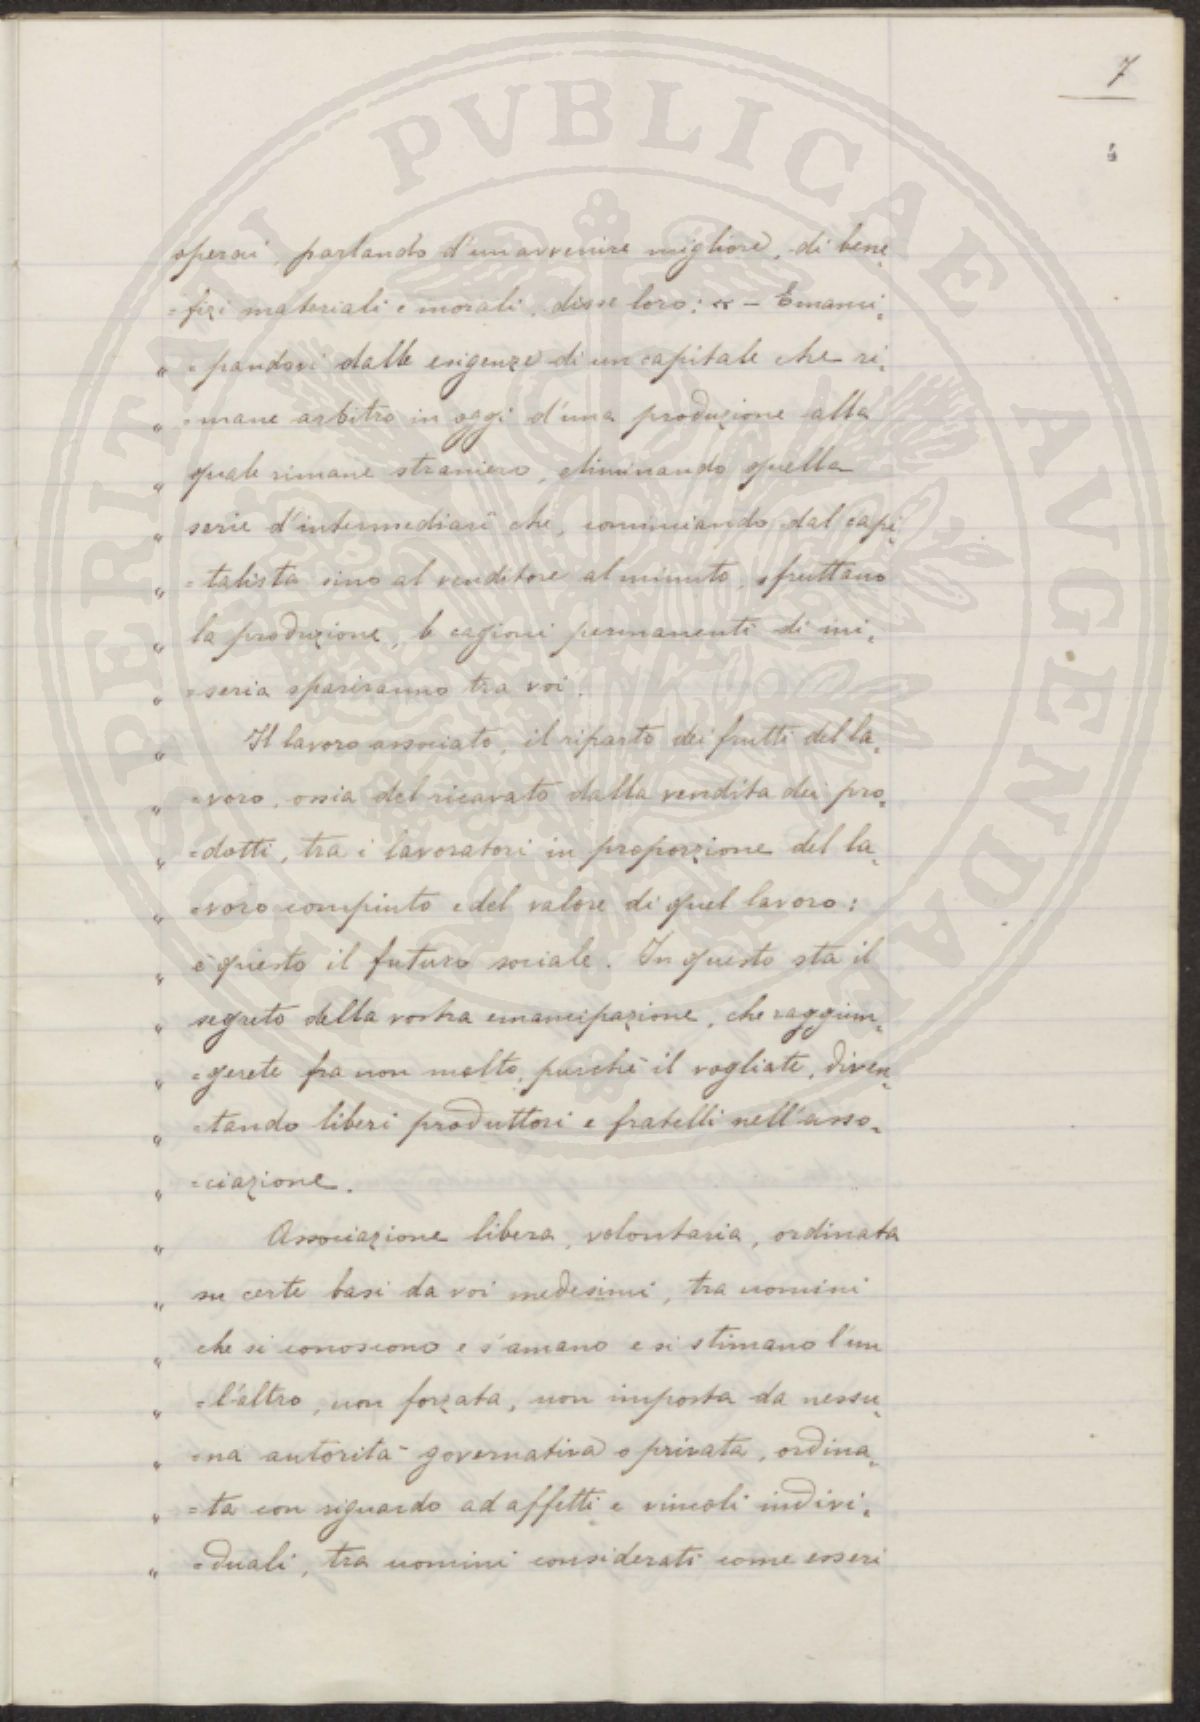 7
4
operai, parlando d'un avvenire migliore, di bene=
=fizi materiali e morali, disse loro: « – Emanci=
" =pandovi dalle esigenze di un capitale che ri=
" =mane arbitro in oggi d'una produzione alla
" quale rimane straniero, eliminando quella
" serie d'intermediarî che, cominciando dal capi=
" =talista sino al venditore al minuto, sfruttano
" la produzione, le cagioni permanenti di mi=
" =seria spariranno tra voi.
" Il lavoro associato, il riparto dei frutti del la=
" =voro, ossia del ricavato dalla vendita dei pro=
" =dotti, tra i lavoratori in proporzione del la=
" =voro compiuto e del valore di quel lavoro:
" è questo il futuro sociale. In questo sta il
" segreto della vostra emancipazione, che raggiun=
" =gerete fra non molto, purchè il vogliate, diven=
" =tando liberi produttori e fratelli nell'asso=
" =ciazione.
" Associazione libera, volontaria, ordinata
" su certe basi da voi medesimi, tra uomini
" che si conoscono e s'amano e si stimano l'un
" =l'altro, non forzata, non imposta da nessu=
" =na autorità governativa o privata, ordina=
" =ta con riguardo ad affetti e vincoli indivi=
" =duali, tra uomini considerati come esseri
PROSPERITATI PVBLICAE AVGENDAE